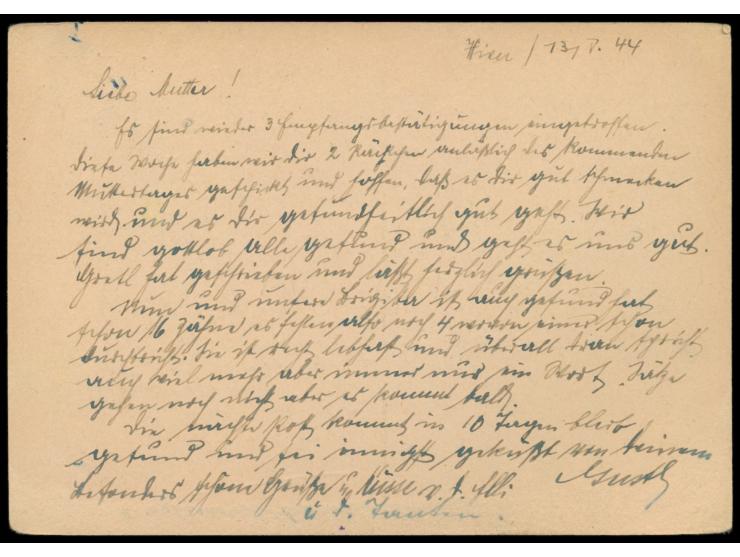 Wien / 13/V. 44
Liebe Mutter!
Es sind wieder 3 Empfangsbestätigungen eingetroffen.
Diese Woche haben wir dir 2 Päckchen anläßlich des kommenden
Muttertages geschickt und hoffen, daß es dir gut schmecken
wird und es dir gesundheitlich gut geht. Wir
sind gottlob alle gesund und geht es uns gut.
Gretl hat geschrieben und läßt herzlich grüßen.
Nun und unsere ist auch gesund hat
schon 6 Zähne es fehlen also noch 4 wovon einer schon
durchbricht. Sie ist recht lebhaft und überall dran spricht
auch viel mehr aber immer nur ein Wort. Sätze
gehen noch nicht aber es kommt bald.
Die nächste Post kommt in 10 Tagen bleib
gesund und sei innigst geküßt von deinem
besonders schöne Grüße u. Küsse v. d. Elli Gustl
u. d. Tanten.